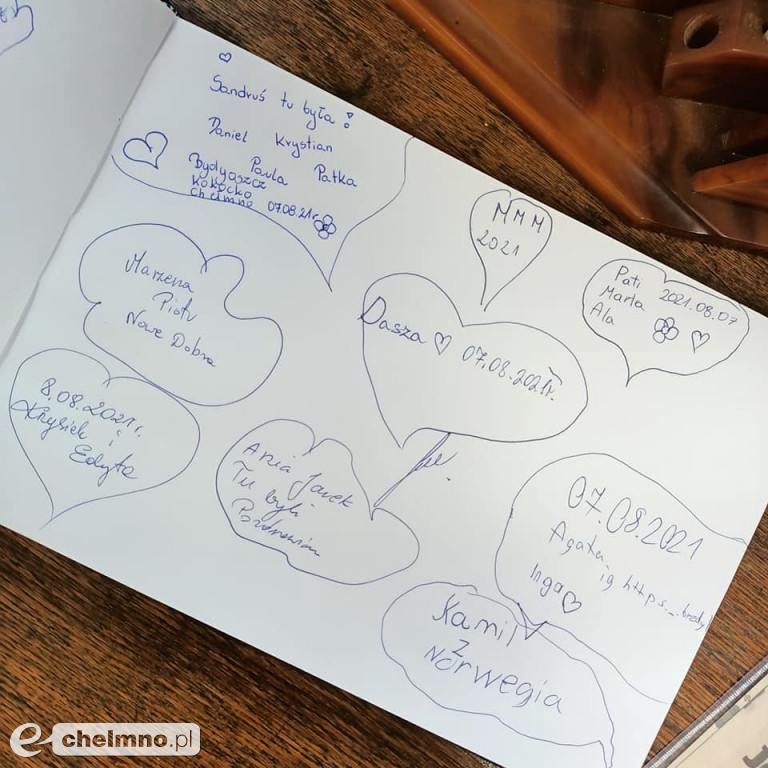 Sandruś tu była !
Daniel Krystian
Paula Patka
Bydgoszcz
Kokocko
Chełmno 07.08.21r.
MMM
2021
Pati 2021.08.07
Marta
Ala
Marzena
Piotr
Nowe Dobra
Dasza 07.08.2021r.
8.08.2021r.
Krysiek i
Edyta
Ania Jarek
Tu byli
07.08.2021
Agata
ig https._.
Inga
Kamil
z
Norwegia
e-chelmno.pl